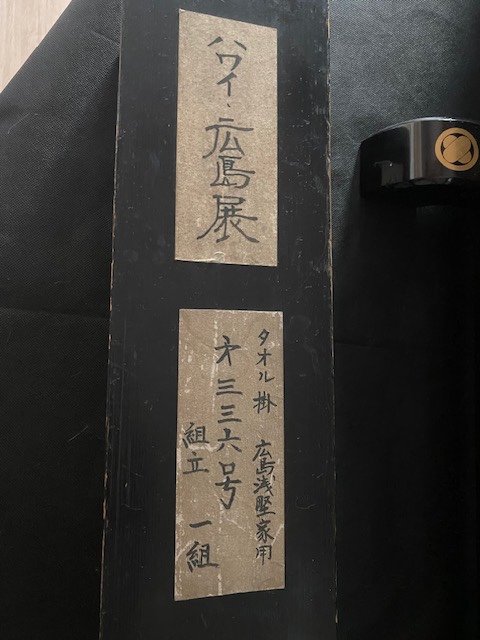 ハワイ、広島展
タオル掛 広島浅野家用
才三三六号
組立 一組